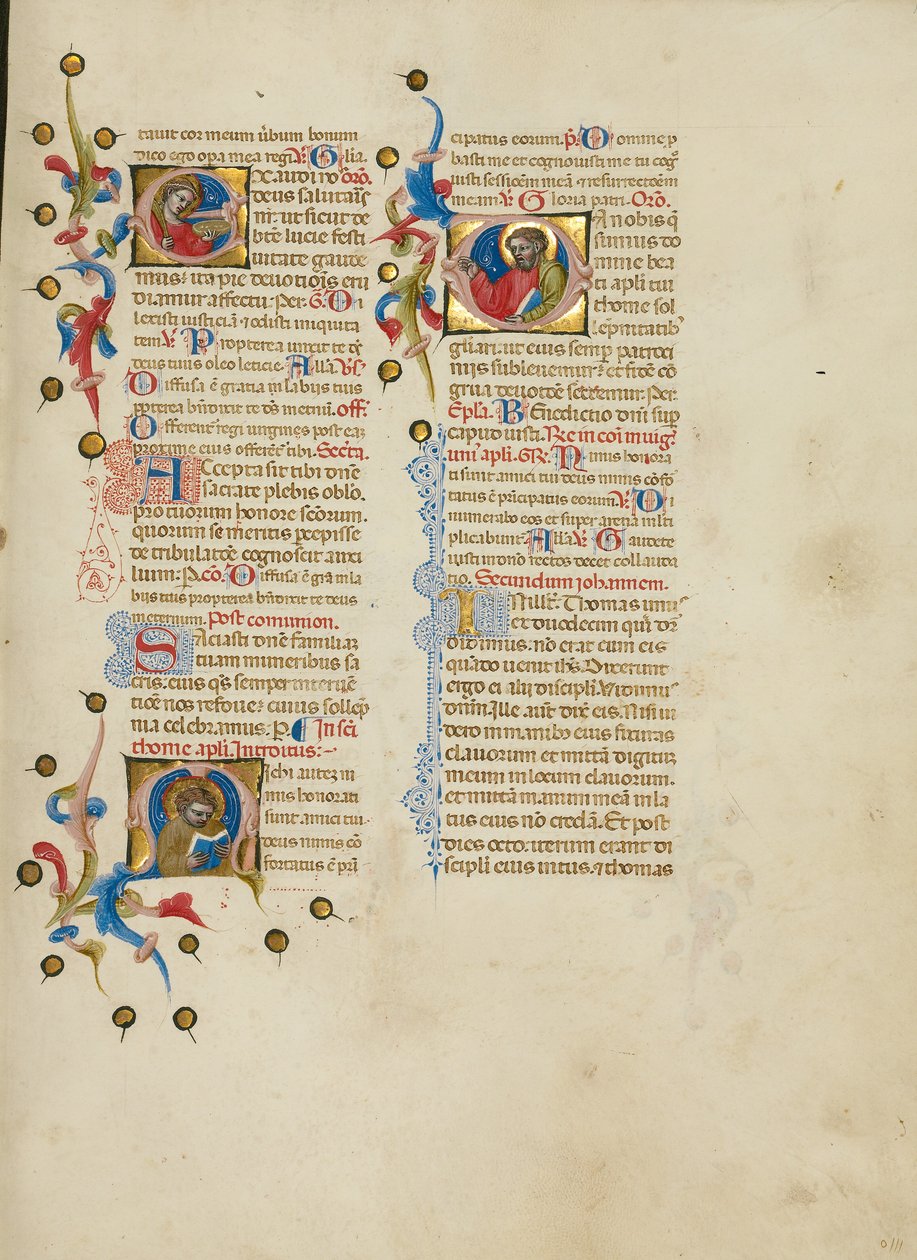 tauit cor meum ůbum bonum
dico ego opa mea regi. V. Glia.
Exaudi no Orō.
deus salutar̄
nr̄. ut sicut de
btē lucie festi
uitate gaude
mus: ita pie deuotiōis eru
diamur affectu. Per. G. Di
lexisti iusticiā ⁊ odisti iniquita
tem. V. Propterea unxit te dš
deus tuus oleo leticie. Alla. Vs.
Diffusa ē gratia in labiis tuis
ppterea bn̄dixit te dš in etnū. off.
Offerent regi uirgines post eaz
proxime eius offerent tibi. Secrta.
Accepta sit tibi dn̄e
sacrate plebis oblo.
pro tuorum honore scōrum.
quorum se meritis pcepisse
de tribulatōe cognoscit auxi
lium: P. cō. Diffusa ē grā in la
biis tuis propterea bn̄dixit te deus
in eternum. Post comunion.
Saciasti dn̄e familiaz
tuam muneribus sa
cris. eius qš semper interuē
tiōe nos refoue: cuius sollep
nia celebramus. P. In sc̄i
thome apli. Introitus:~
Michi autez ni
mis honorati
sunt amici tui.
deus nimis cō
fortatus ē prī
cipatus eorum. p̄. Domine p
basti me et cognouisti me tu cog
uisti sessiōem meā ⁊ resurrectōem
meam. V. Gloria patri. Orō.
Da nobis q̄
sumus do
mine bea
ti apli tui
thome sol
lepnitatib
gliari. ut eius semp patroci
niis subleuemur: et fidē cō
grua deuotōe sectemur. Per.
Epla. Benedictio dnī sup
caput iusti. Re in cōi in uig
uniꝰ apli. GR. Nimis honora
ti sunt amici tui deus nimis cōfor
tatus ē pricipatus eorum. V. Di
numerabo eos et super arenā mlti
plicabunt. Alla. V. Gaudete
iusti in dnō rectos decet collauda
tio. Secundum johannem.
IN illt. Thomas unus
et duodecim qui dr̄
didimus. nō erat cum eis
quādo uenit ihs. Dixerunt
ergo ei alii discipli. Vidimus
dnm. Ille aut dixt eis. Nisi ui
dero in manibꝰ eius fixuras
clauorum et mittā digituz
meum in locum clauorum.
et mittā manum meā in la
tus eius nō credā. Et post
dies octo: iterum erant di
scipli eius intus. ⁊ thomas